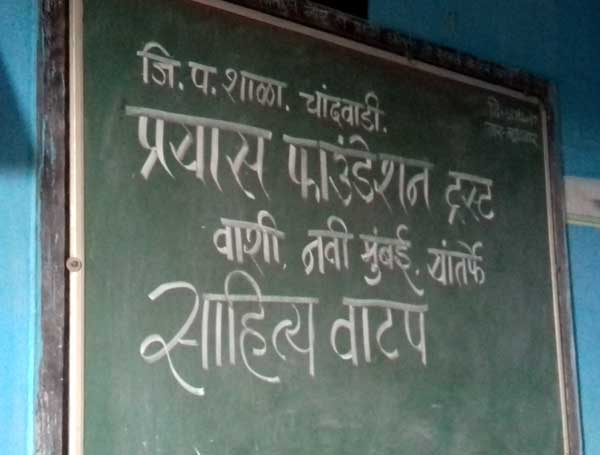 जि. प. शाळा. चांदवाडी.
प्रयास फाउंडेशन ट्रस्ट
वाशी. नवी मुंबई. यांतर्फे
साहित्य वाटप